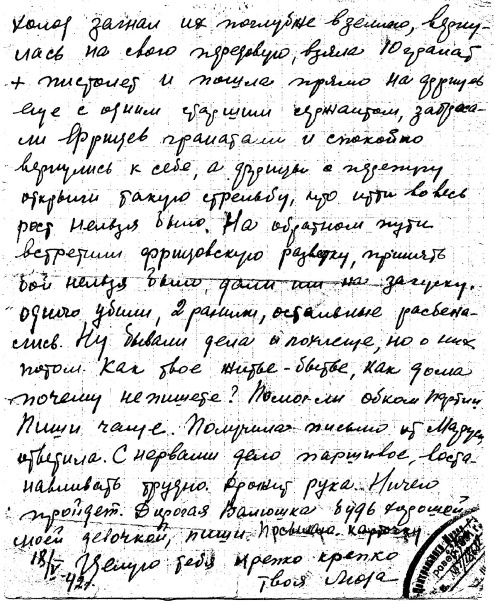 холод загнал их поглубже в землю, верну-
лась на свою передовую, взяла 10 гранат
+ пистолет и пошла прямо на фрицев
еще с одним старшим сержантом, заброса-
ли фрицев гранатами и спокойно
вернулись к себе, а фрицы с перепугу
открыли такую стрельбу, что итти во весь
рост нельзя было. На обратном пути
встретили фрицовскую разведку, принять
бой нельзя было, дали им на закуску.
одного убили, 2 ранили, остальные разбежа-
лись. Ну бывали дела и похлеще, но о них
потом. Как твое житье-бытье, как дома
почему не пишете? Помог ли обком партии
Пиши чаще. Получила письмо от Маруси
ответила. С нервами дело паршивое, воста-
навливать трудно. Дрожит рука. Ничего
пройдет. Дорогая Валюшка будь хорошей
моей девочкой, пиши. Посылаю карточку
18/V-42г. Целую тебя крепко крепко
твоя Люда